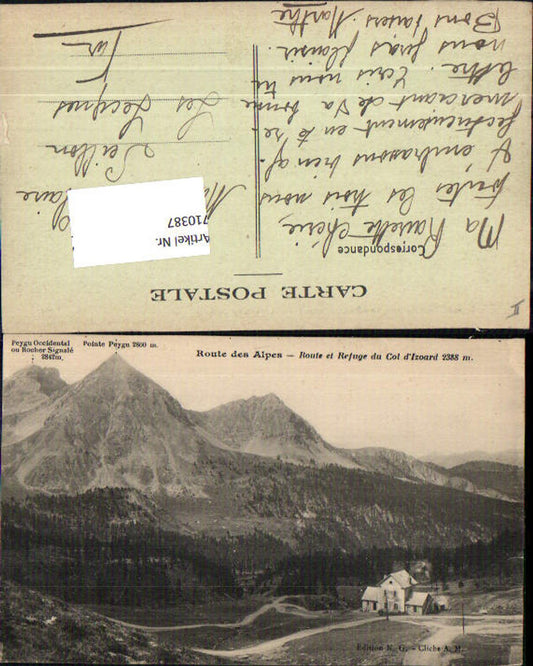 CARTE POSTALE
Correspondance
Ma Ravette chérie,
toutes les trois nous
t'embrassons bien af-
fectueusement en te re-
merciant de ta bonne
lettre. Ecris nous tu
nous feras plaisir.
Bons baisers. Marthe
Seillon
Les
Var
Artikel Nr.
710387
II
Peygu Occidental
ou Rocher Signalé
2842m.
Pointe Peygu 2800 m.
Route des Alpes — Route et Refuge du Col d'Izoard 2388 m.
Edition N. G. - Cliché A. M.